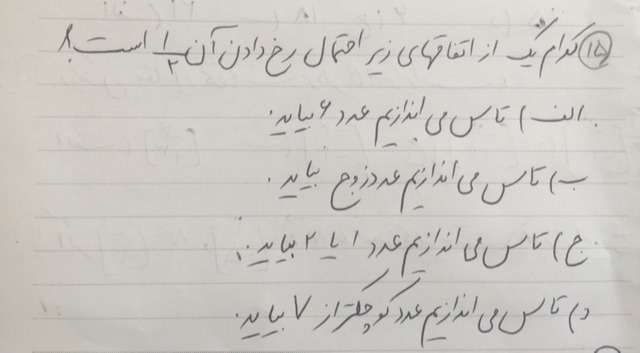 ۱۵) کدام یک از اتفاقهای زیر احتمال رخ دادن آن ۱/۲ است؟
الف) تاس می اندازیم عدد ۶ بیاید.
ب) تاس می اندازیم عدد زوج بیاید.
ج) تاس می اندازیم عدد ۱ یا ۲ بیاید.
د) تاس می اندازیم عدد کوچکتر از ۷ بیاید.